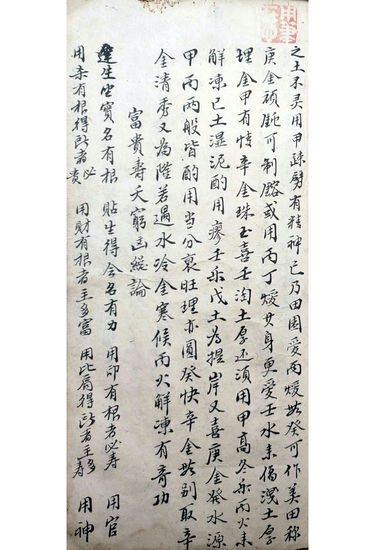 之土不灵用甲疎劈有精神己乃田園爱丙煖癸可作美田稼
庚金硕鈍可制鎔或用丙丁煖其身更爱壬水来傷洩土厚
理金甲有情辛金珠玉喜壬淘土厚还須用甲高冬乐丙火未
解凍己土湿泥酌用壬乐戊土為提岸又喜庚金發水源
甲丙两般皆酌用当分衰旺理亦圆癸快辛金别取辛
金清秀又為隆若遍水冷金寒候丙火解凍有奇功
富貴寿夭窮凶總論
生坐實名有根 貼生得令名有力 用印有根者必寿 用官
用杀有根得者必貴 用財有根者主多富 用比肩得者主多寿 用神